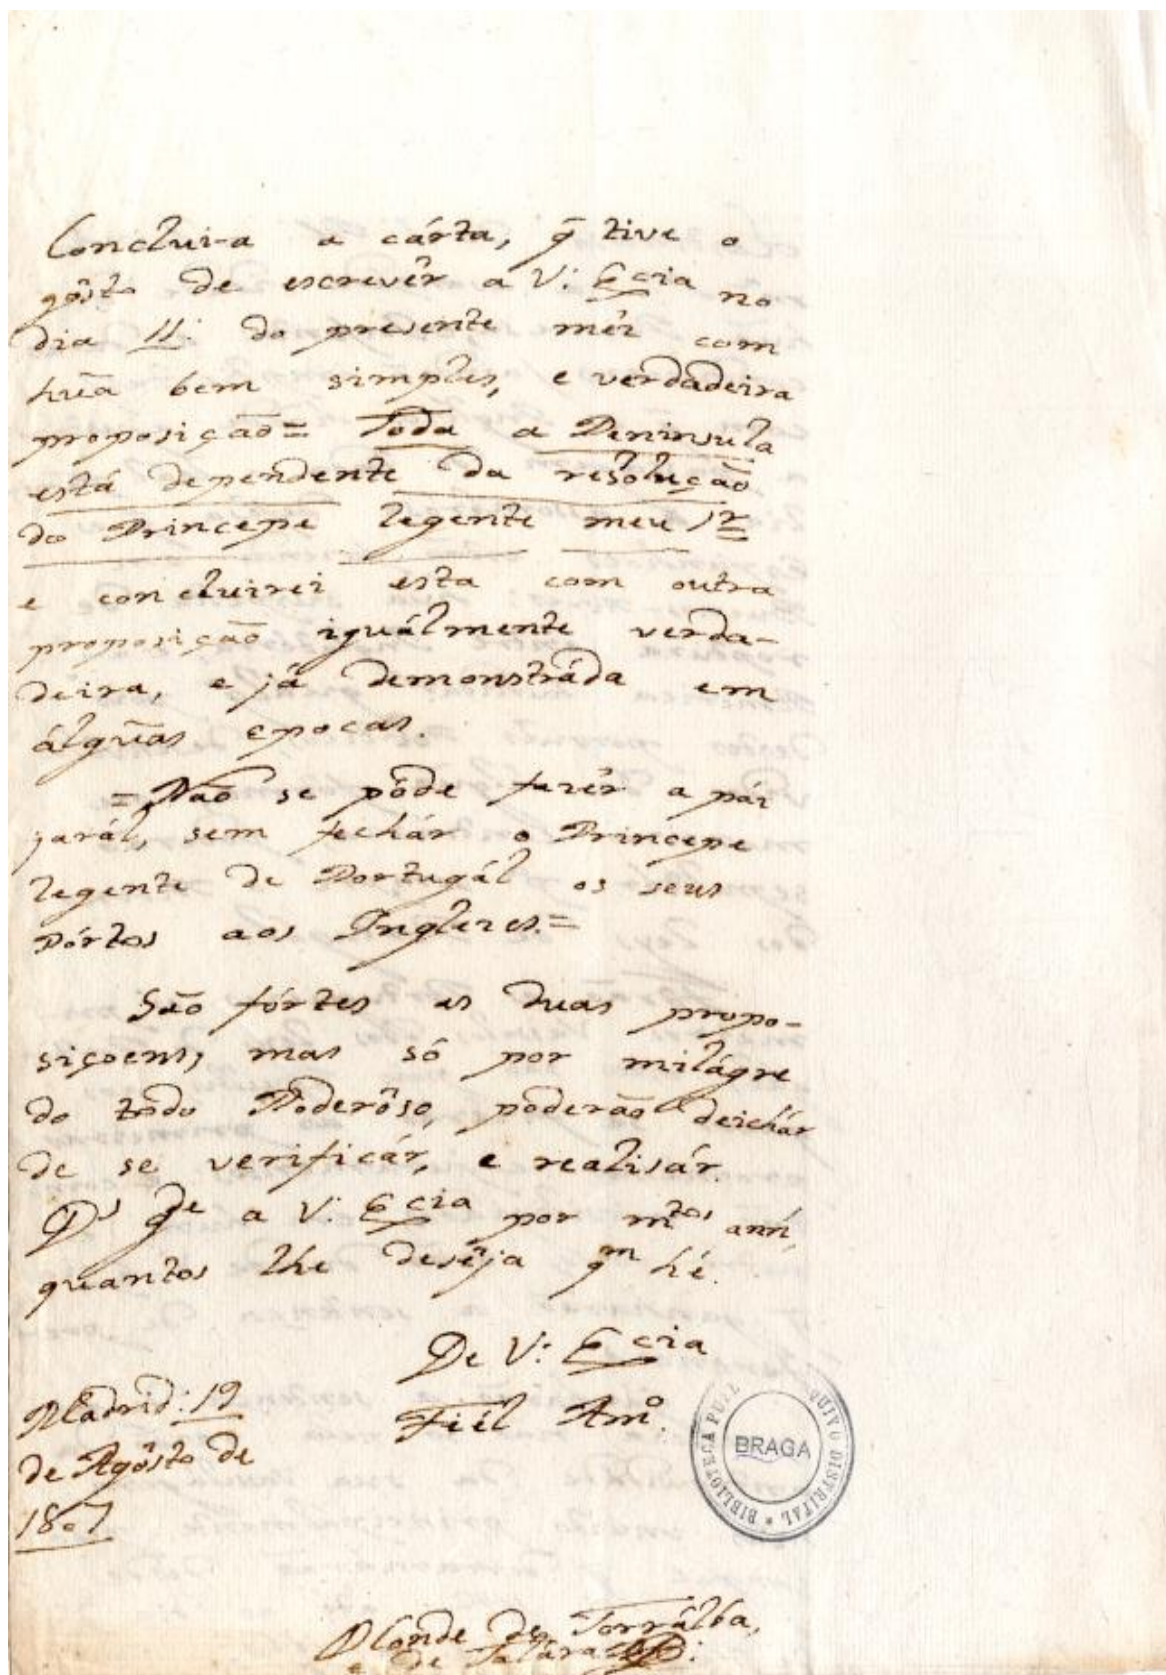 Conclui-a a cárta, q̃ tive o
gôsto de escrevêr a V: Ecia no
dia 11. do presente mêz com
hũa bem simples, e verdadeira
proposição= Toda a Peninsula
está dependente da resolução
do Principe regente meu Sr
e concluirei esta com outra
proposição iguálmente verda-
deira, e já demonstráda em
álgũas epocas.
=Não se póde fazêr a páz
jarál, sem fechár o Principe
regente de Portugál os seus
Pórtos aos Inglezes.=
São fórtes as duas propo-
siçoens, mas só por milágre
do todo Poderôso, poderão deichár
de se verificár, e realisár.
Ds gde a V: Ecia por mtos ann,
quantos lhe desêja qm hé.
De V: Ecia
Fiél Amo.
Madrid: 19
de Agôsto de
1807
Conde de Torrálba,
e de
BIBLIOTECA PUBL QUIVO DISTRITAL
BRAGA